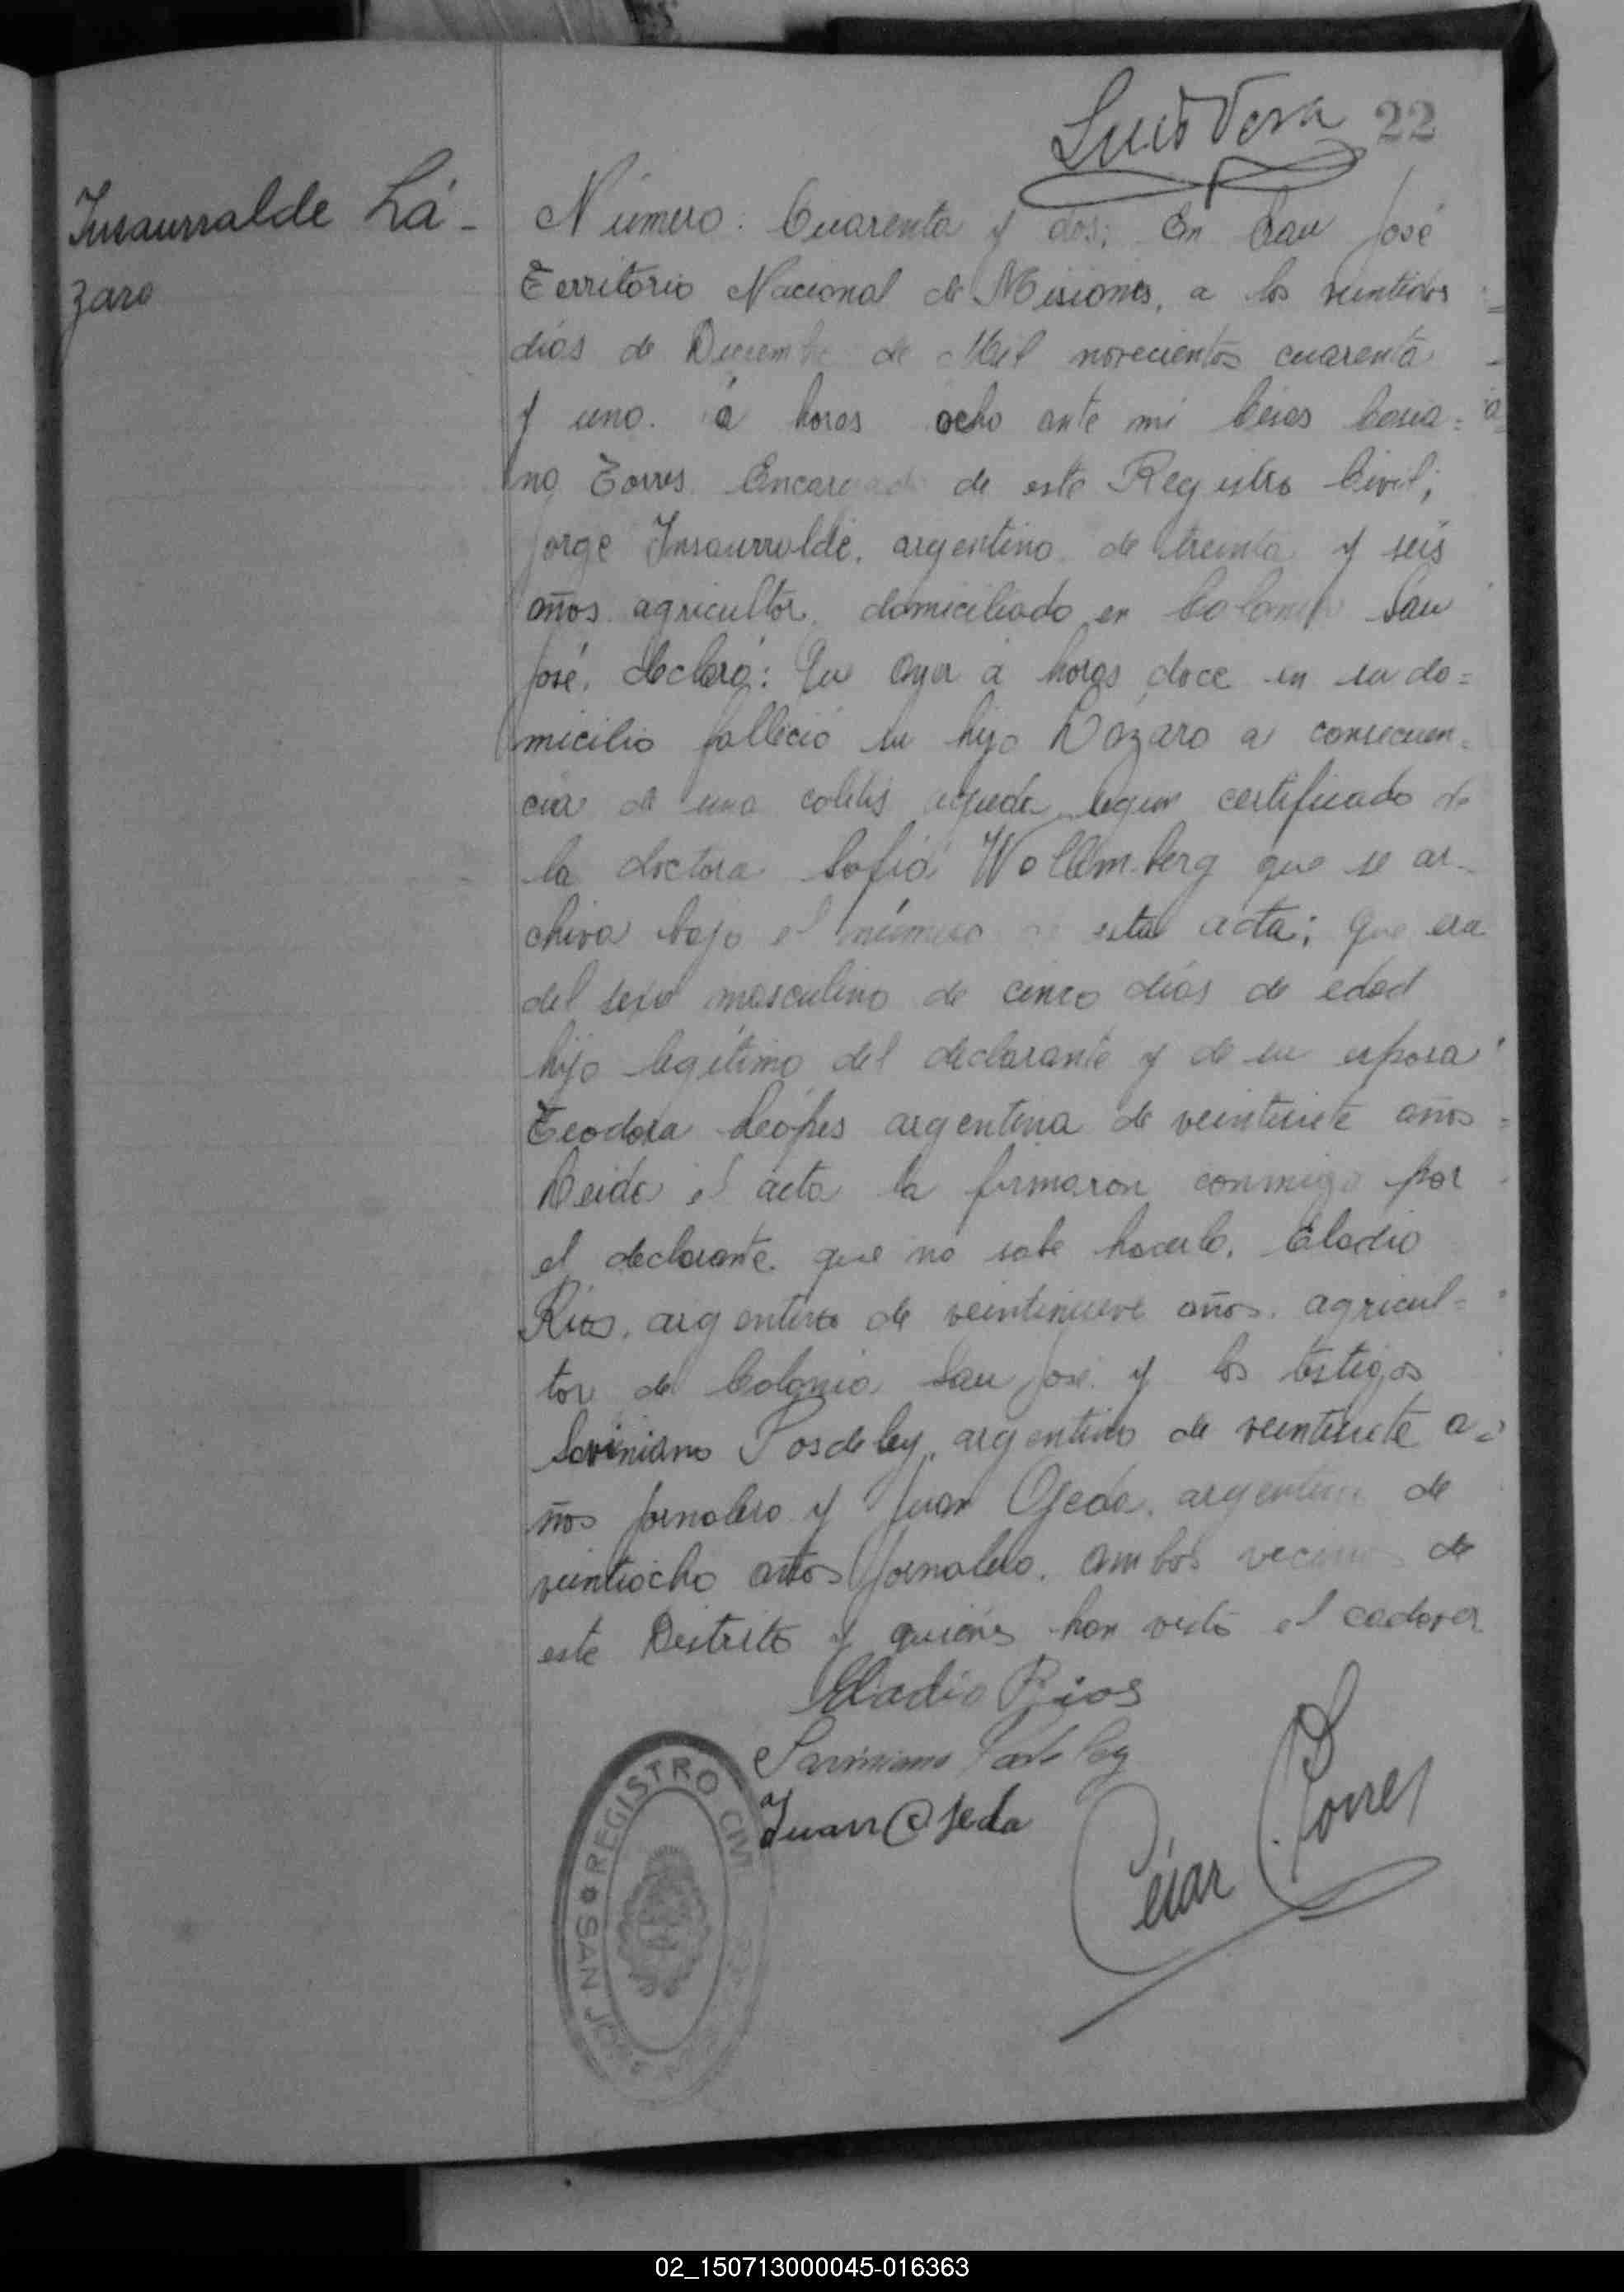 Luis Vera
22
Insaurralde Lá-
zaro
Número: Cuarenta y dos; En San José
Territorio Nacional de Misiones, a los veintidos
días de Diciembre de Mil novecientos cuarenta
y uno. a horas ocho ante mi César Casia=
no Torres Encargado de este Registro Civil;
Jorge Insaurralde, argentino de treinta y seis
años agricultor, domiciliado en Colonia San
José, declaró: Que ayer a horas doce en su do=
micilio falleció su hijo Lázaro a consecuen=
cia de una colitis aguda segun certificado de
la doctora Sofia Wollemberg que se ar-
chiva bajo el número de esta acta; que era
del sexo masculino de cinco días de edad
hijo legítimo del declarante y de su esposa
Teodora Leópes argentina de veintisiete años
Leida el acta la firmaron conmigo por
el declarante que no sabe hacerlo, Eladio
Rios, argentino de veintinueve años. agricul=
tor de Colonia San José y los testigos
Saviniano Posdeley, argentino de veintisiete a=
ños jornalero y Juan Ojeda, argentino de
veintiocho años jornalero. ambos vecinos de
este Distrito y quiénes han visto el cadaver
Eladio Rios
Saviniano
Juan Ojeda
César Torres
REGISTRO CIVIL
SAN JOSE
02_150713000045-016363